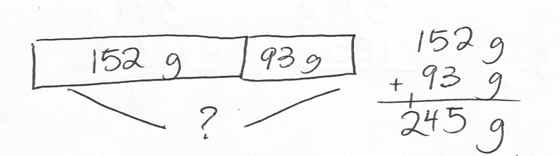 152 g 93 g
?
152 g
+ 93 g
245 g